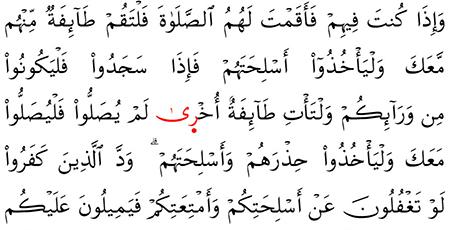 وَإِذَا كُنتَ فِيهِمْ فَأَقَمْتَ لَهُمُ ٱلصَّلَوٰةَ فَلْتَقُمْ طَآئِفَةٌ مِّنْهُم
مَّعَكَ وَلْيَأْخُذُوٓا۟ أَسْلِحَتَهُمْ فَإِذَا سَجَدُوا۟ فَلْيَكُونُوا۟
مِن وَرَآئِكُمْ وَلْتَأْتِ طَآئِفَةٌ أُخْرَىٰ لَمْ يُصَلُّوا۟ فَلْيُصَلُّوا۟
مَعَكَ وَلْيَأْخُذُوا۟ حِذْرَهُمْ وَأَسْلِحَتَهُمْ ۗ وَدَّ ٱلَّذِينَ كَفَرُوا۟
لَوْ تَغْفُلُونَ عَنْ أَسْلِحَتِكُمْ وَأَمْتِعَتِكُمْ فَيَمِيلُونَ عَلَيْكُم